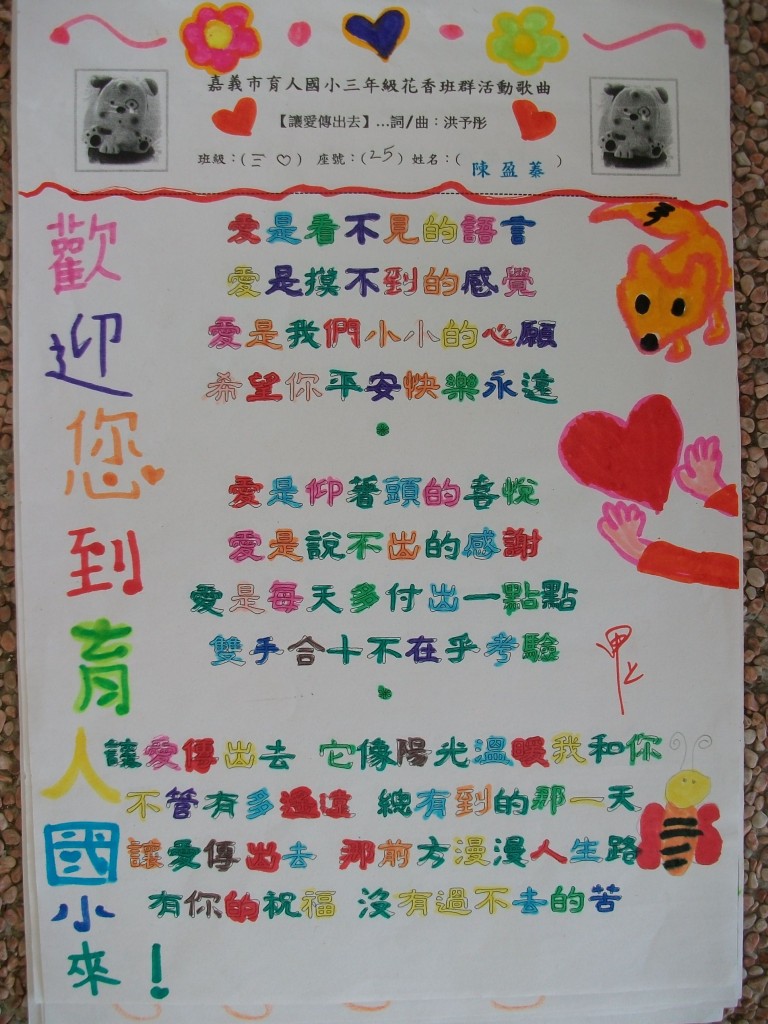 嘉義市育人國小三年級花香班群活動歌曲
【讓愛傳出去】…詞/曲：洪予彤
班級：(三 ♡) 座號：(25) 姓名：(陳盈蓁)
歡迎您到育人國小來！
愛是看不見的語言
愛是摸不到的感覺
愛是我們小小的心願
希望你平安快樂永遠
愛是仰著頭的喜悅
愛是說不出的感謝
愛是每天多付出一點點
雙手合十不在乎考驗
讓愛傳出去 它像陽光溫暖我和你
不管有多遙遠 總有到的那一天
讓愛傳出去 那前方漫漫人生路
有你的祝福 沒有過不去的苦